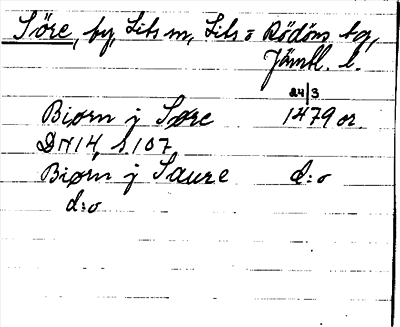 Söre, by, Lits sn, Lits o Rödöns tg,
Jämtl. l.
24/3
Biørn j Søre 1479 or.
DN 14, s 107
Biørn j Saure d:o
d:o